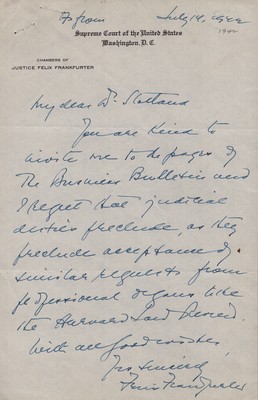 July 14, 1942
1942
Supreme Court of the United States
Washington, D. C.
CHAMBERS OF
JUSTICE FELIX FRANKFURTER
My dear Dr. Scotland
You are kind to
invite me to the pages of
The Business Bulletin and
I regret that judicial
duties preclude, as they
preclude acceptance of
similar requests from
professional organs like
the Harvard Law Review.
With all good wishes,
Yrs sincerely,
Felix Frankfurter